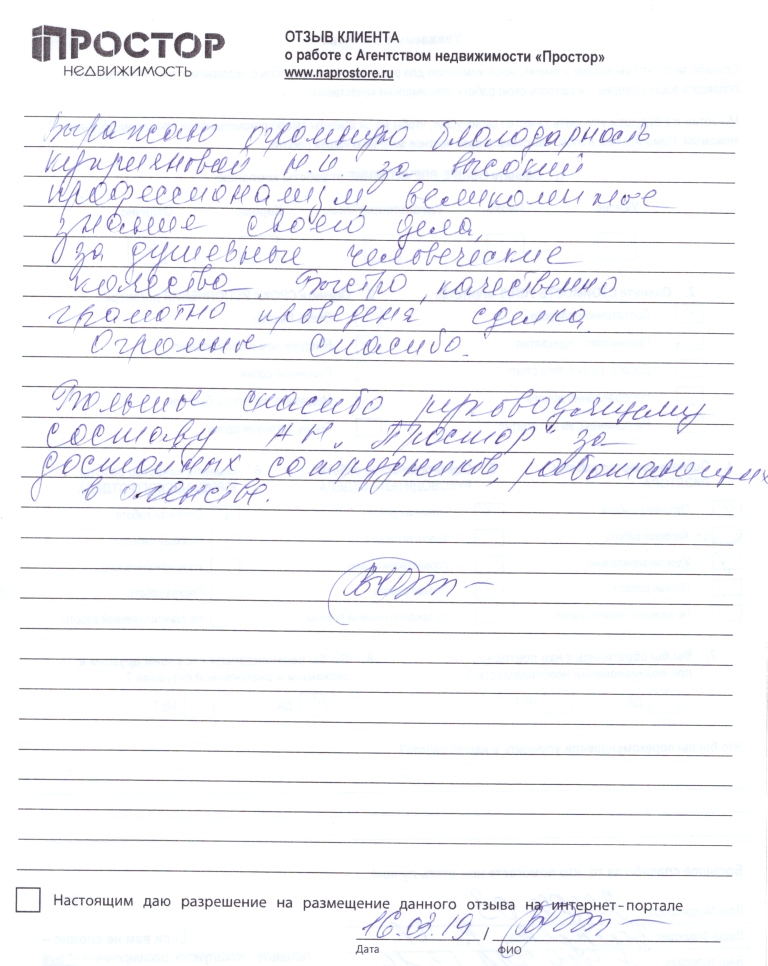 ПРОСТОР
НЕДВИЖИМОСТЬ
ОТЗЫВ КЛИЕНТА
о работе с Агентством недвижимости «Простор»
www.naprostore.ru
Выражаю огромную благодарность
Куприяновой Н.И. за высокий
профессионализм, великолепное
знание своего дела,
за душевные человеческие
качества. Быстро, качественно
грамотно проведена сделка.
Огромное спасибо.
Большое спасибо руководящему
составу АН „Простор" за
достойных сотрудников, работающих
в агенстве.
Настоящим даю разрешение на размещение данного отзыва на интернет-портале
16.03.19 /
Дата
ФИО